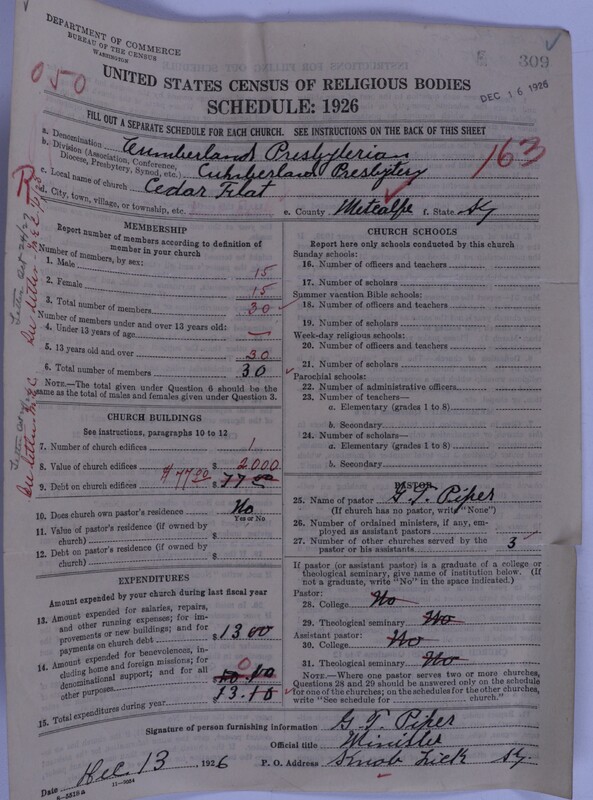 309
DEPARTMENT OF COMMERCE
BUREAU OF THE CENSUS
WASHINGTON
050
DEC 16 1926
UNITED STATES CENSUS OF RELIGIOUS BODIES
SCHEDULE: 1926
FILL OUT A SEPARATE SCHEDULE FOR EACH CHURCH. SEE INSTRUCTIONS ON THE BACK OF THIS SHEET
163
a. Denomination Cumberland Presbyterian
b. Division (Association, Conference, Diocese, Presbytery, Synod, etc.) Cumberland Presbytery
c. Local name of church Cedar Flat
d. City, town, village, or township, etc.
e. County Metcalfe f. State Ky
MEMBERSHIP
Report number of members according to definition of
member in your church
Number of members, by sex:
1. Male 15
2. Female 15
3. Total number of members 30
Number of members under and over 13 years old:
4. Under 13 years of age —
5. 13 years old and over 30
6. Total number of members 30
NOTE.—The total given under Question 6 should be the
same as the total of males and females given under Question 3.
CHURCH BUILDINGS
See instructions, paragraphs 10 to 12
7. Number of church edifices 1
8. Value of church edifices $ 2000
9. Debt on church edifices $77.00 $ 77 00
10. Does church own pastor's residence No
Yes or No
11. Value of pastor's residence (if owned by
church) $
12. Debt on pastor's residence (if owned by
church) $
EXPENDITURES
Amount expended by your church during last fiscal year
13. Amount expended for salaries, repairs,
and other running expenses; for im-
provements or new buildings; and for
payments on church debt $ 13 00
14. Amount expended for benevolences, in-
cluding home and foreign missions; for
denominational support; and for all
other purposes 10.10
15. Total expenditures during year 13.10
CHURCH SCHOOLS
Report here only schools conducted by this church
Sunday schools:
16. Number of officers and teachers
17. Number of scholars
Summer vacation Bible schools:
18. Number of officers and teachers
19. Number of scholars
Week-day religious schools:
20. Number of officers and teachers
21. Number of scholars
Parochial schools:
22. Number of administrative officers
23. Number of teachers—
a. Elementary (grades 1 to 8)
b. Secondary
24. Number of scholars—
a. Elementary (grades 1 to 8)
b. Secondary
PASTOR
25. Name of pastor G. T. Piper
(If church has no pastor, write "None")
26. Number of ordained ministers, if any, em-
ployed as assistant pastors
27. Number of other churches served by the
pastor or his assistants 3
If pastor (or assistant pastor) is a graduate of a college or
theological seminary, give name of institution below. (If
not a graduate, write "No" in the space indicated.)
Pastor:
28. College No
29. Theological seminary No
Assistant pastor:
30. College No
31. Theological seminary No
NOTE.—Where one pastor serves two or more churches,
Questions 28 and 29 should be answered only on the schedule
for one of the churches; on the schedules for the other churches,
write "See schedule for church."
Signature of person furnishing information G T Piper
Official title Minister
Date Dec. 13, 1926 P. O. Address Knob Lick Ky
8-5518a 11-9064